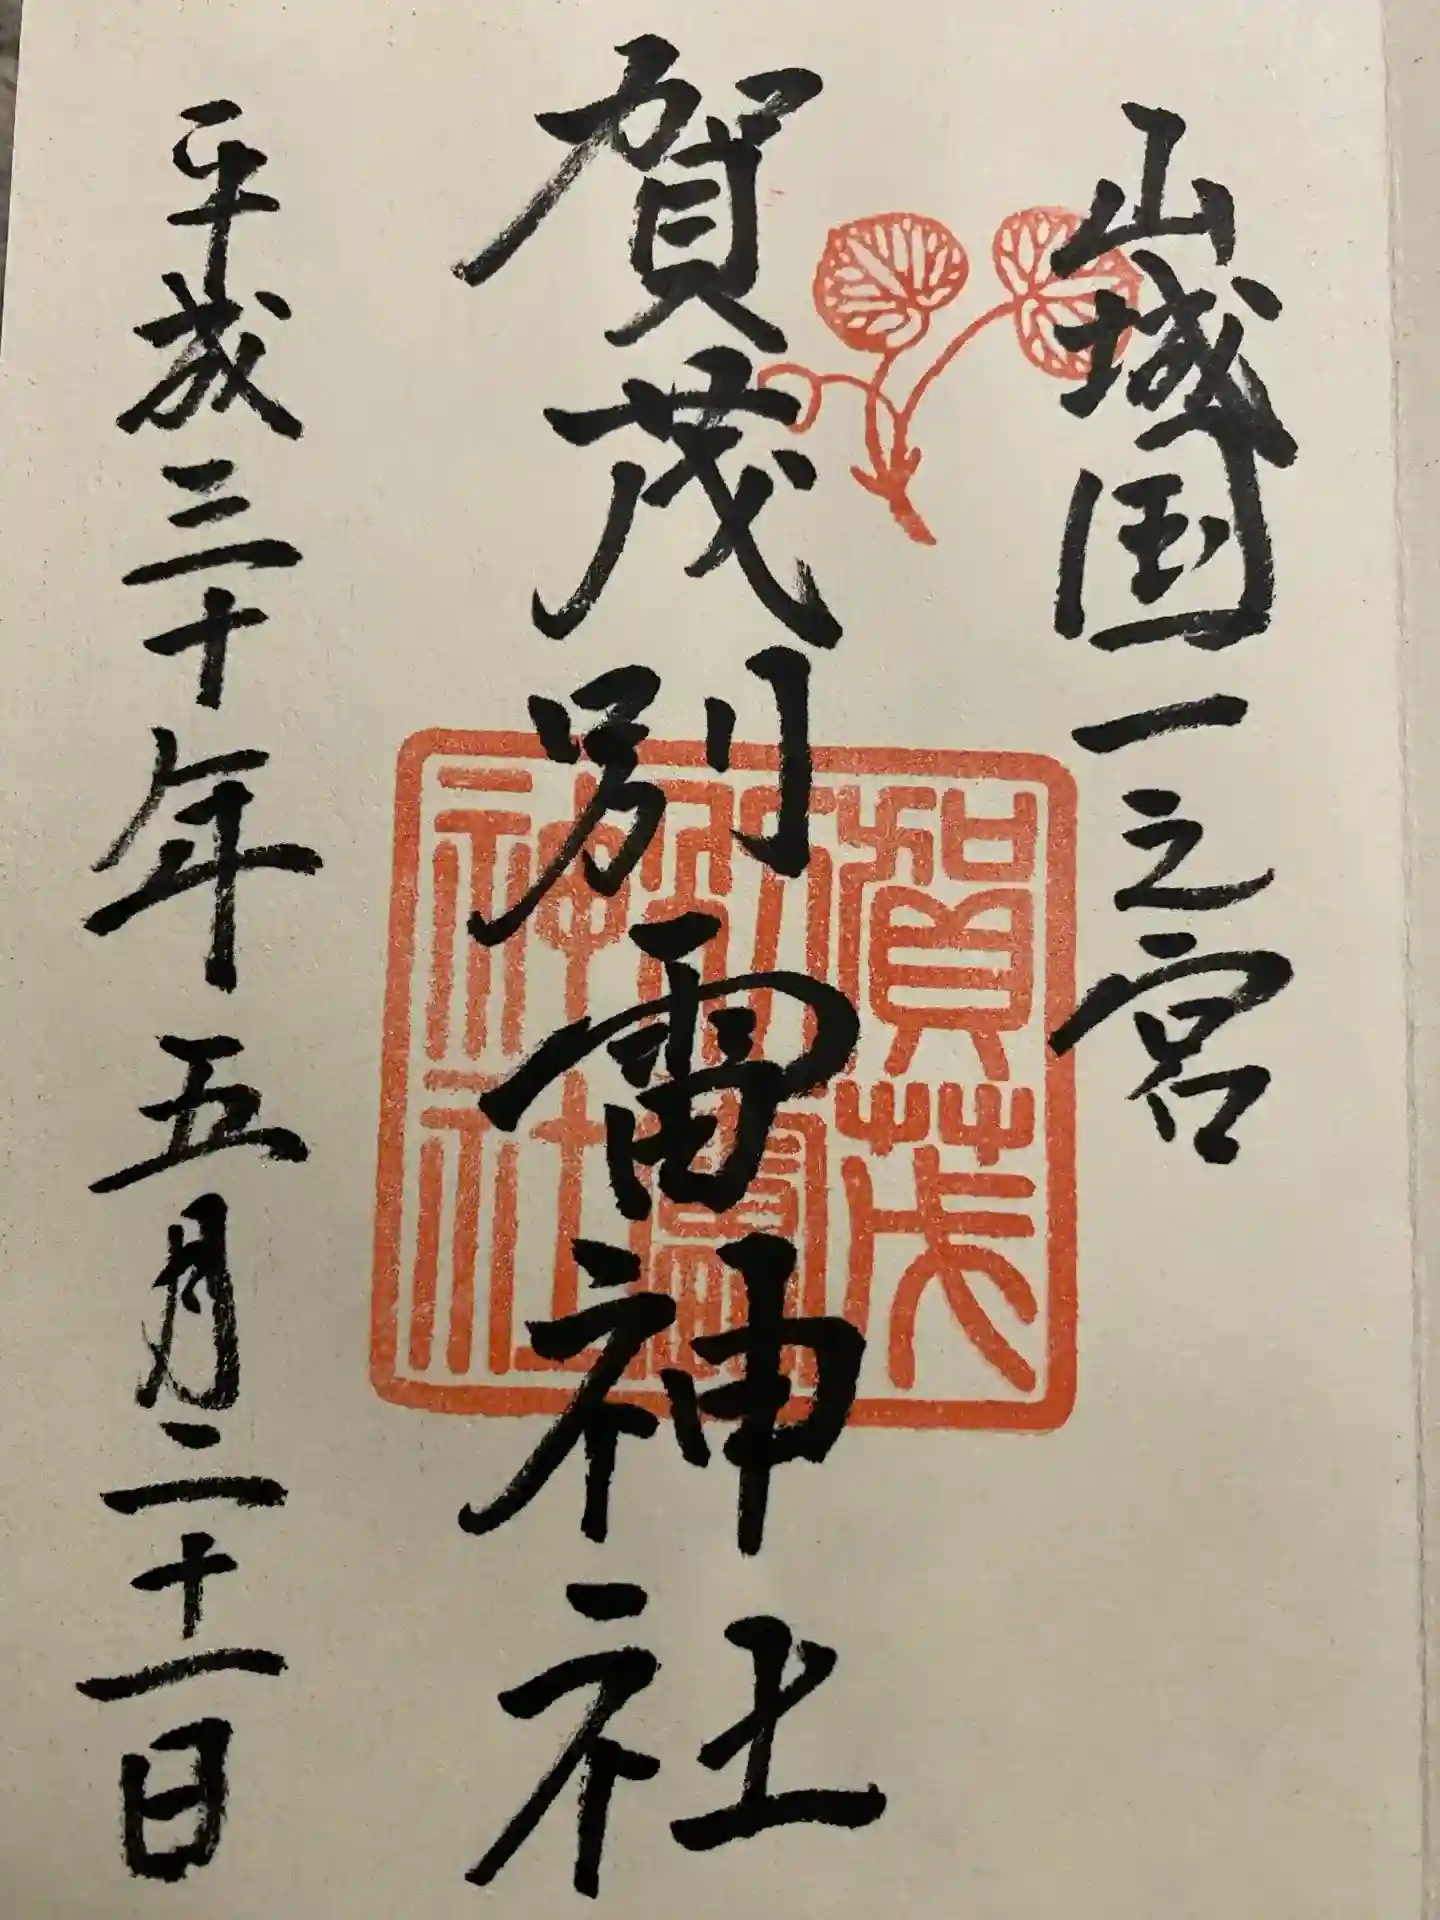 山城国一之宮
賀茂別雷神社
賀茂別雷神社
平成三十年五月二十一日